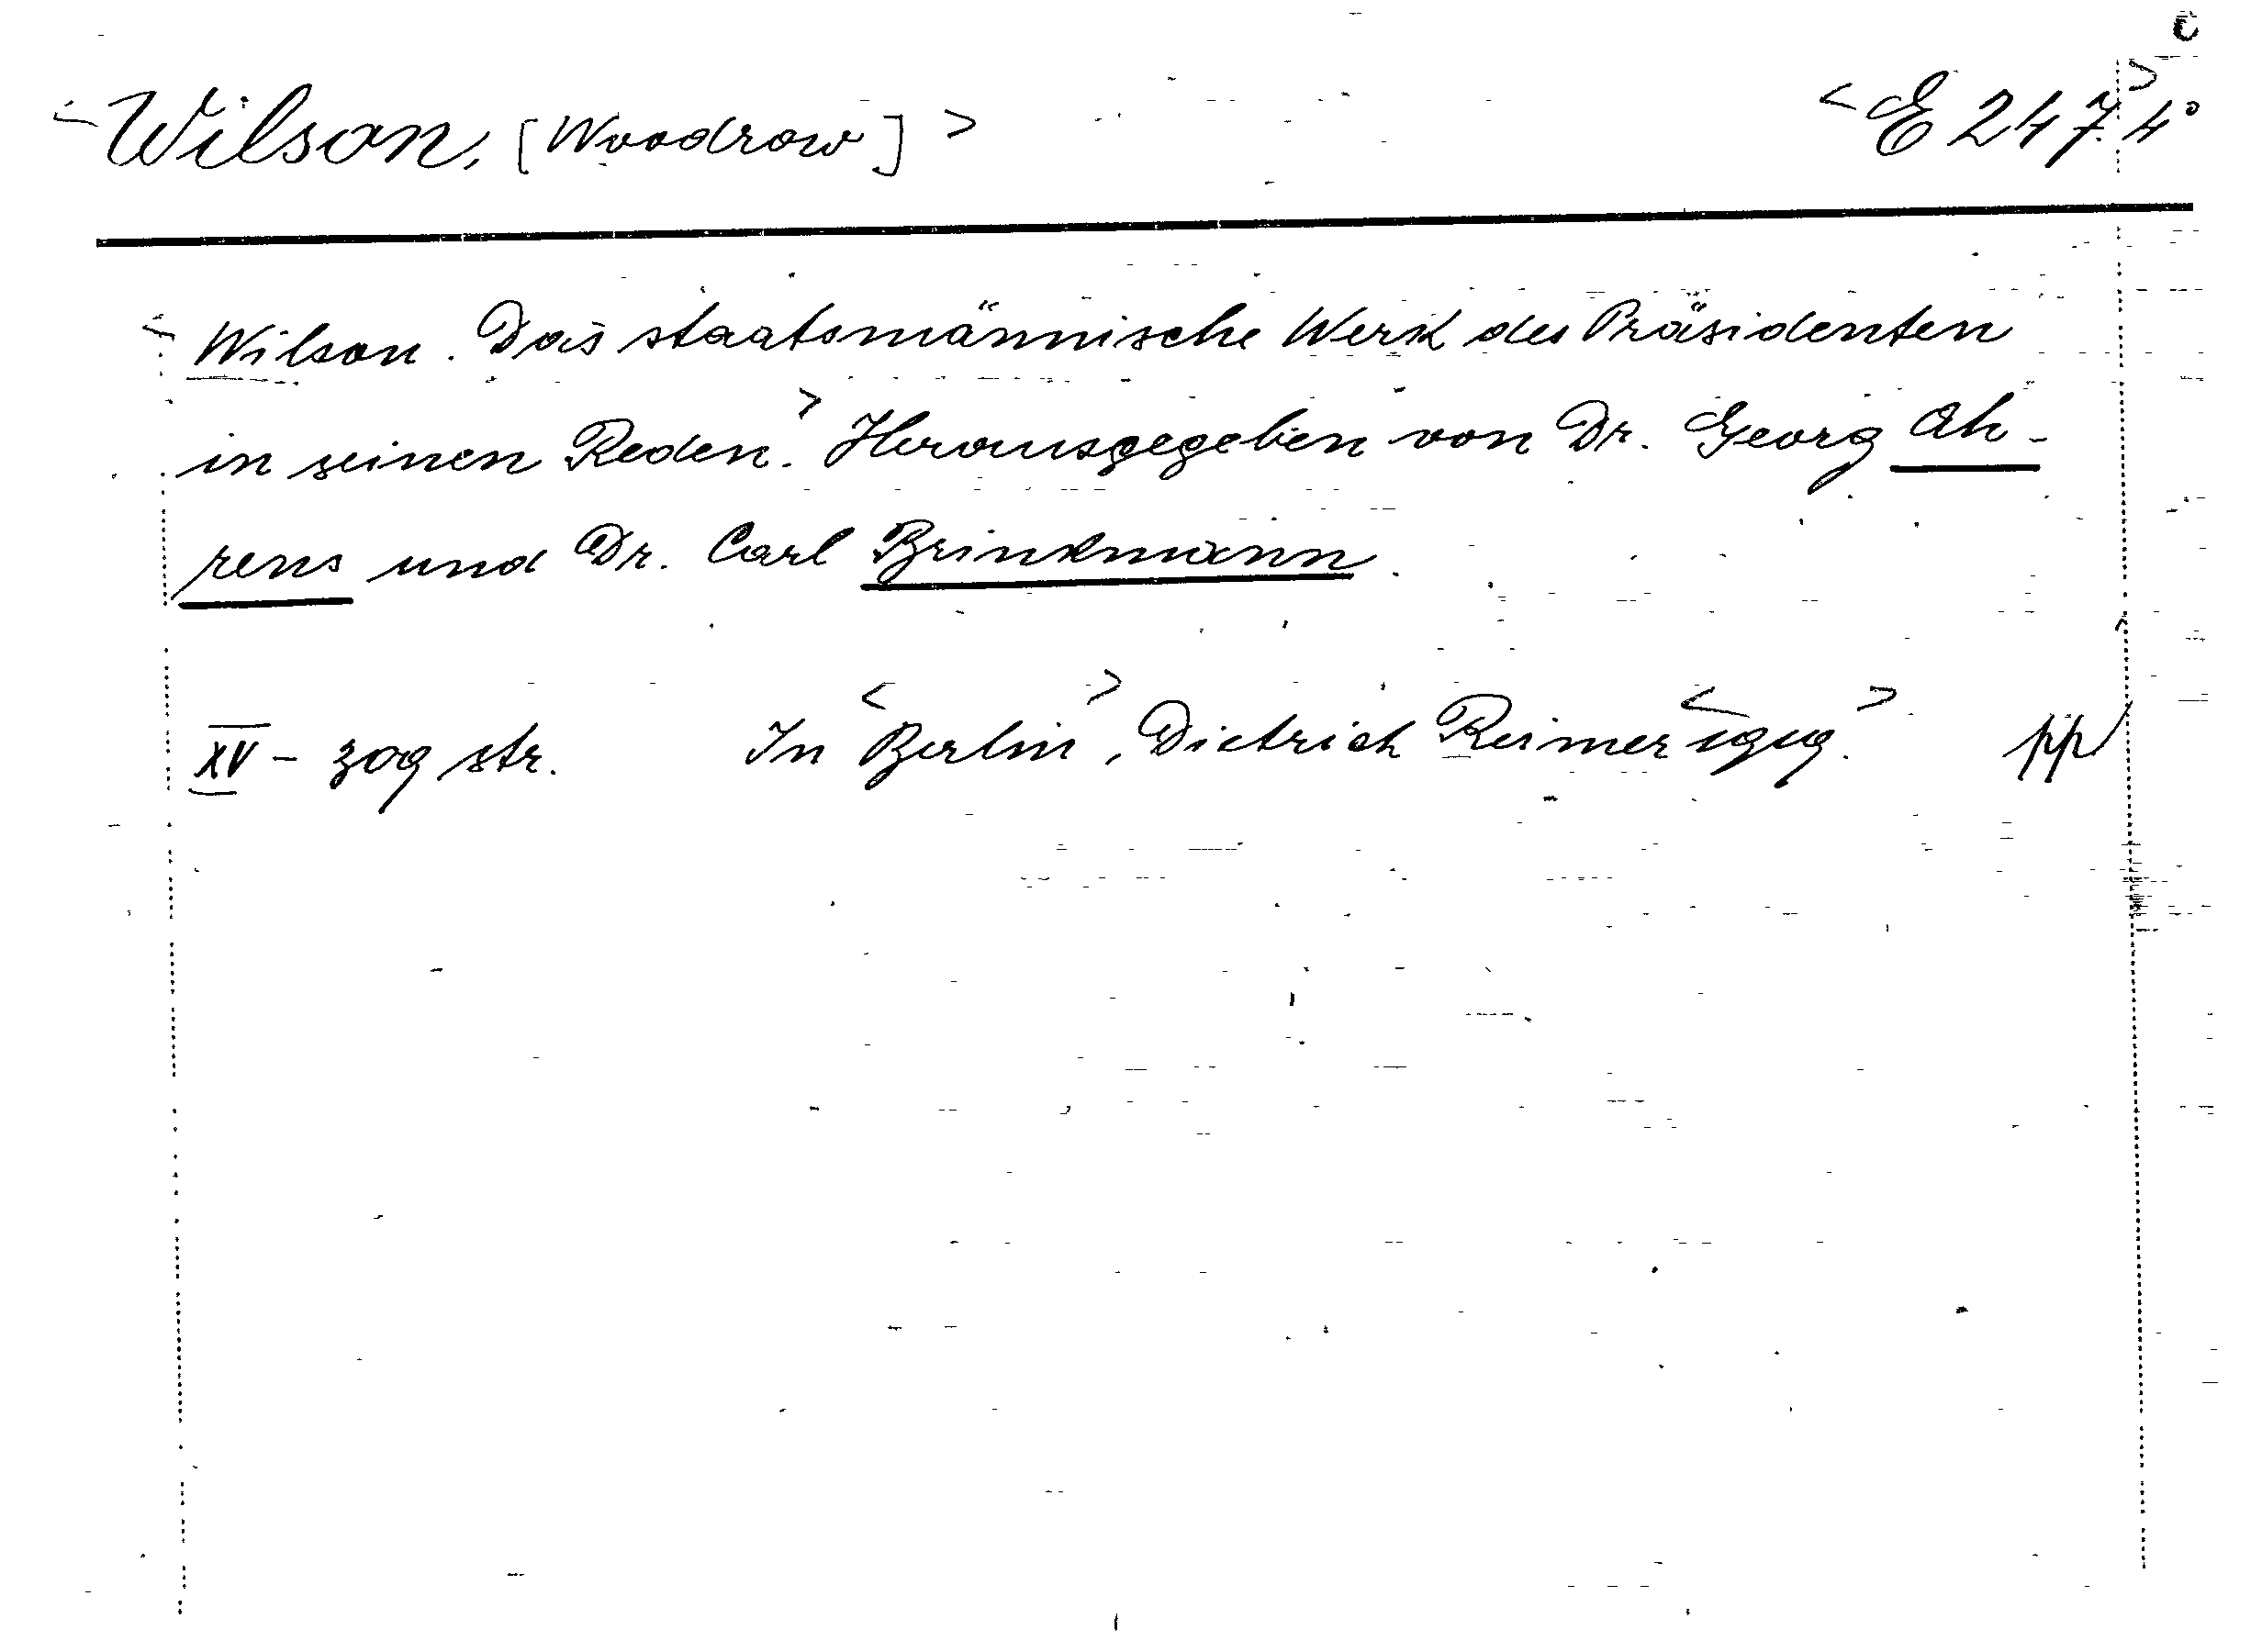 <Wilson, [Woodrow]> <E 247.> 4°
<Wilson. Das staatsmännische Werk des Präsidenten
in seinen Reden.> Herausgegeben von Dr. Georg Ah-
rens und Dr. Carl Brinkmann.
XV - 309 str. In <Berlin>, Dietrich Reimer <1919.> pp